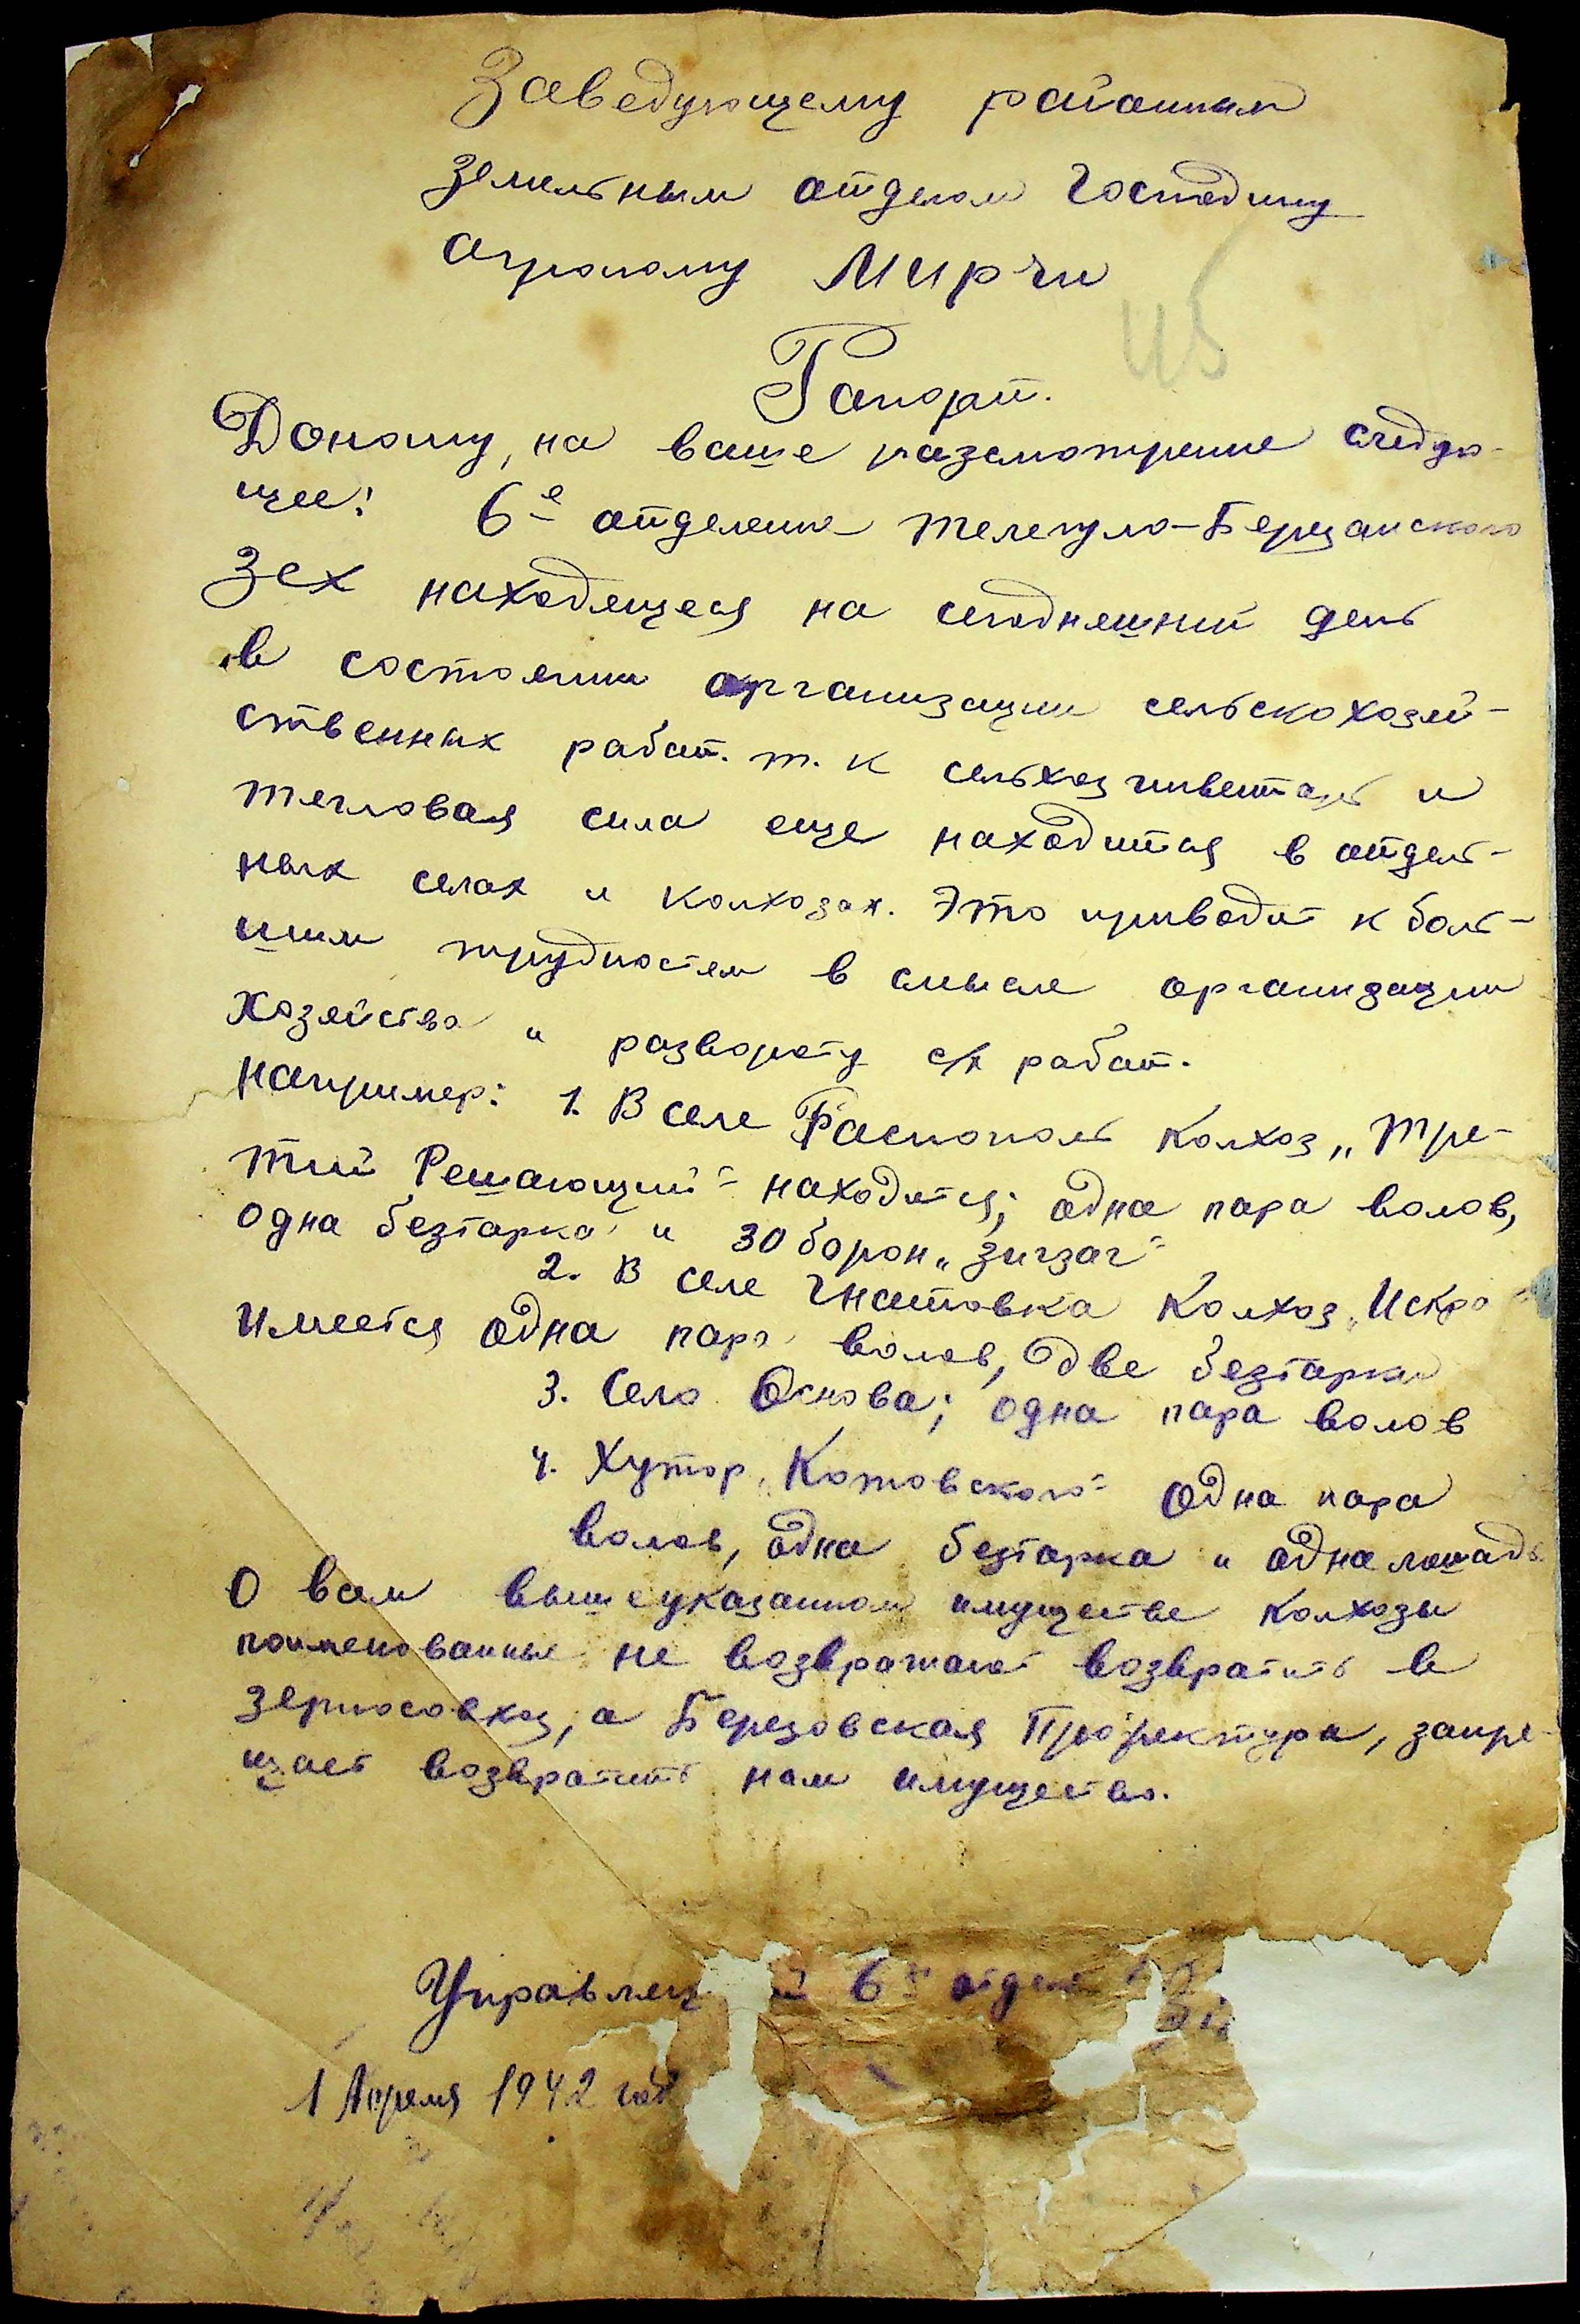 Заведующему районным
земельным отделом господину
агроному Мирчи
45
Рапорт.
Доношу, на ваше разсмотрение следую-
щее: 6-е отделение Телегуло-Березанского
Зсх находящеся на сегодняшний день
в состоянии организации сельскохозяй-
ственных работ. т. к сельхозинвентарь и
тягловая сила еще находится в отдель-
ных селах и колхозах. Это приводит к боль-
шим трудностям в смысле организации
хозяйства и развороту с/х работ.
Например: 1. В селе Располь колхоз „Тре-
тий Решающий" находится; одна пара волов,
одна безтарка и 30 борон „зигзаг"
2. В селе Гнатовка колхоз „Искра"
имеется одна пара волов, две безтарки
3. Село Основа; одна пара волов
4. Хутор „Котовского" одна пара
волов, одна безтарка и одна лошадь.
О вам вышеуказанном имуществе колхозы
поименованные не возвражают возвратить в
зерносовхоз, а Березовская Профектура, запре-
щает возвратить нам имущество.
Управляющ 6м отдел
1 Апреля 1942 год